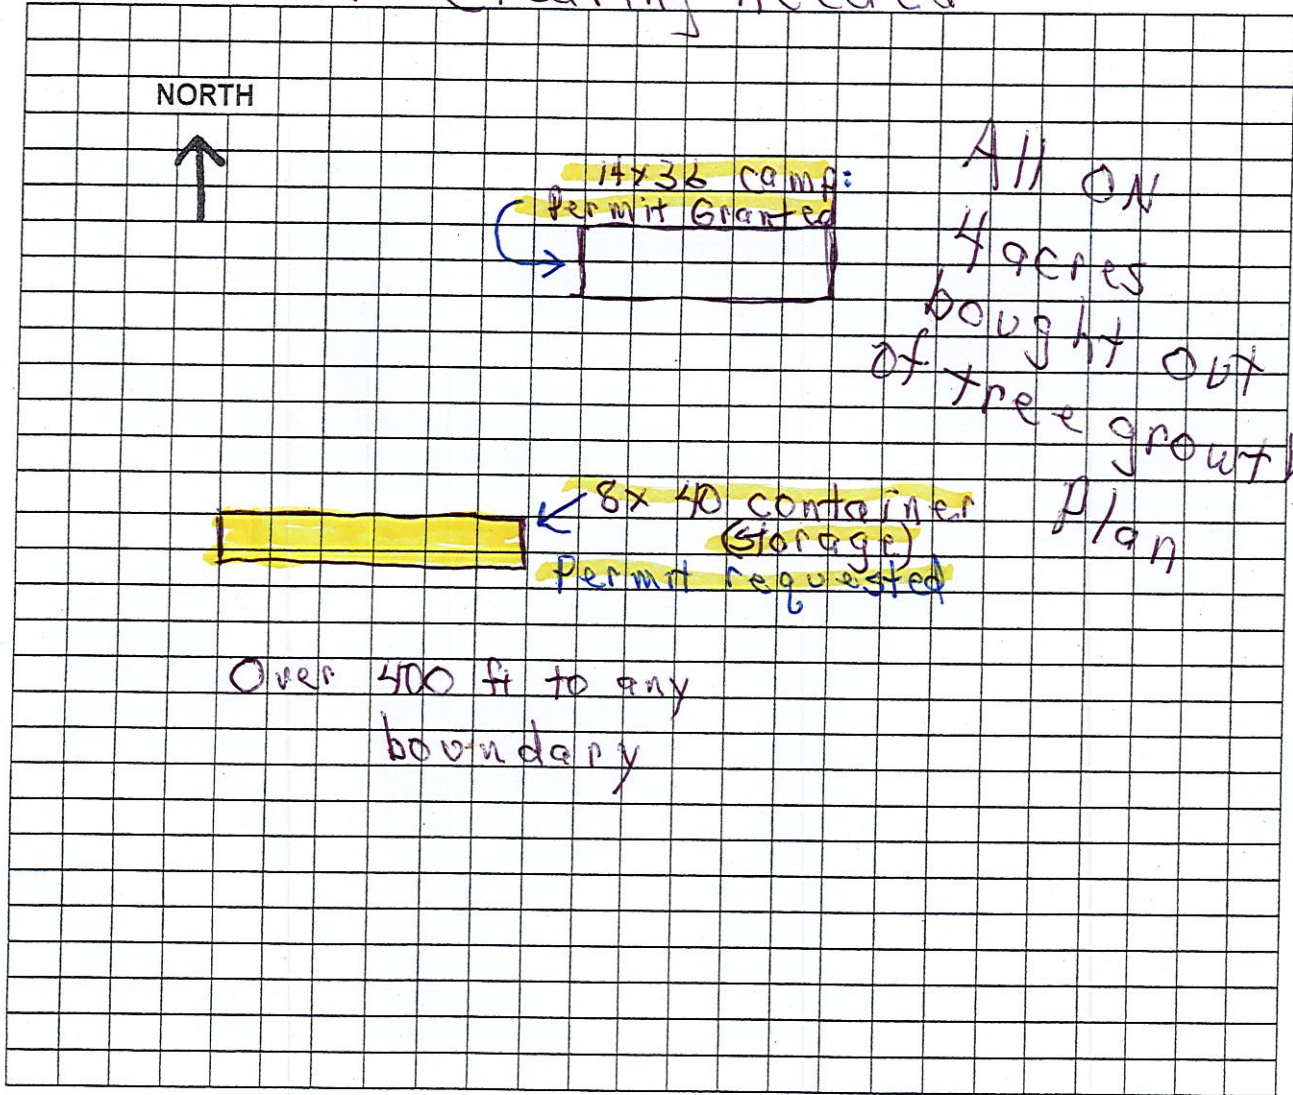 Clearing Needed
NORTH
14x36 camp:
Permit Granted
All ON
4 acres
bought out
of tree growth
Plan
8x 40 container
(storage)
Permit requested
Over 400 ft to any
boundary